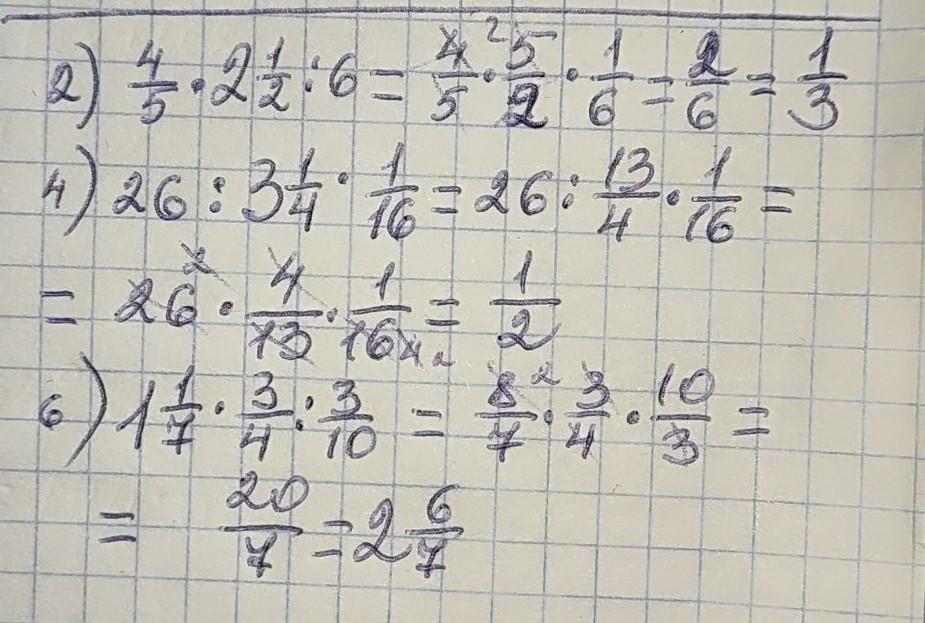 2) 4/5 · 2 1/2 : 6 = 4/5 ² · 5/2 · 1/6 = 2/6 = 1/3
4) 26 : 3 1/4 · 1/16 = 26 : 13/4 · 1/16 =
= 26 ² · 4/13 · 1/16 4 2 = 1/2
6) 1 1/7 · 3/4 : 3/10 = 8/7 ² · 3/4 · 10/3 =
= 20/7 = 2 6/7